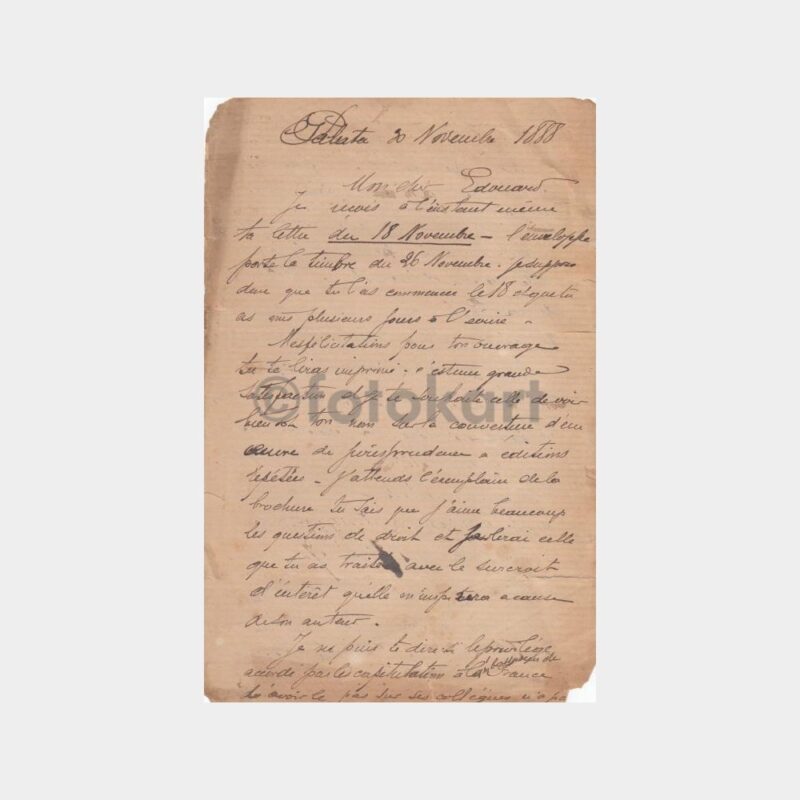 Galata 30 Novembre 1888
Mon cher Edouard
Je reçois à l'instant même
ta lettre du 18 Novembre – l'enveloppe
porte le timbre du 26 Novembre. je suppose
donc que tu l'as commencée le 18 et que tu
as mis plusieurs jours à l'écrire –
Mes félicitations pour ton ouvrage
tu te liras imprimé. c'est une grande
satisfaction et je te souhaite celle de voir
bientôt ton nom sur la couverture d'un
œuvre de jurisprudence à éditions
répétées – J'attends l'exemplaire de la
brochure tu sais que j'aime beaucoup
les questions de droit et je lirai celle
que tu as traitée avec le surcroit
d'intérêt qu'elle m'inspirera à cause
de son auteur.
Je ne puis te dire si le privilège
accordé par les capitulations à la France
d'avoir le pas sur ses collègues n'a pas
©fotokart